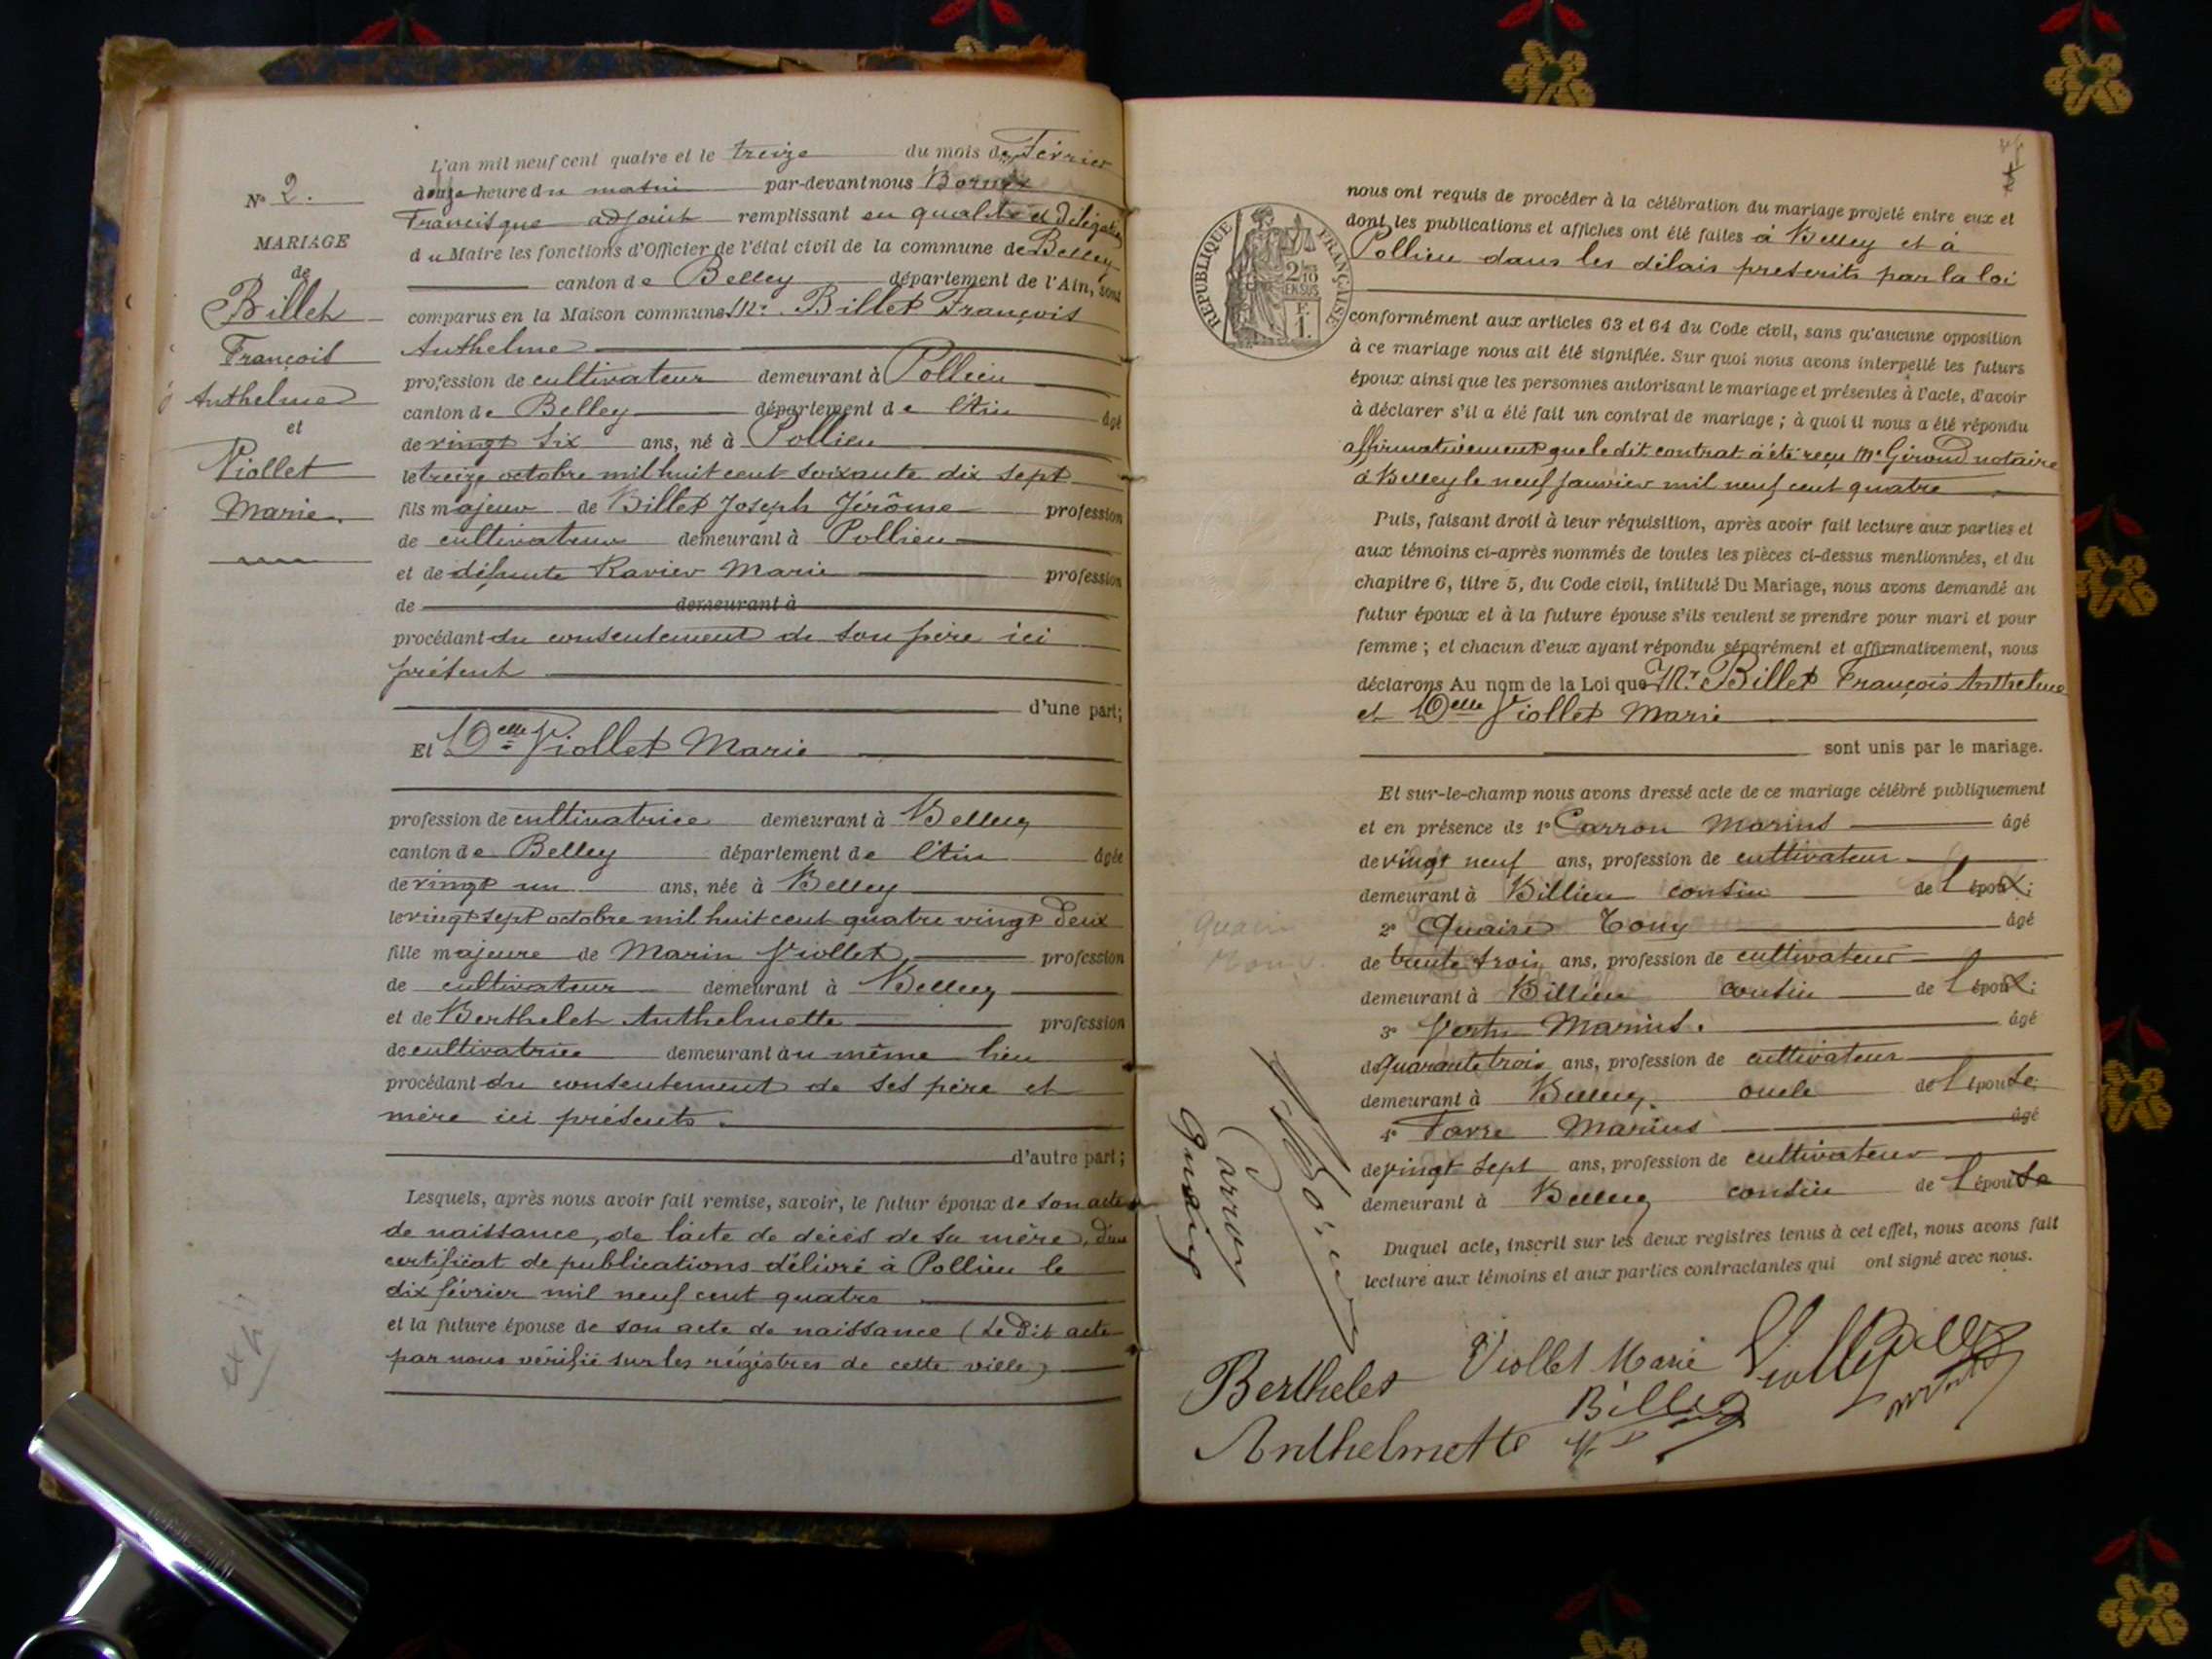 N° 2.
MARIAGE
de
Billet
François
Anthelme
et
Viollet
Marie.
L'an mil neuf cent quatre et le treize du mois de Février
heure du matin par-devant nous
Francisque adjoint remplissant en qualité et délégation
du Maire les fonctions d'Officier de l'état civil de la commune de Belley
canton de Belley département de l'Ain, sont
comparus en la Maison commune Mr. Billet François
Anthelme
profession de cultivateur demeurant à Pollieu
canton de Belley département de l'Ain âgé
de vingt six ans, né à Pollieu
le treize octobre mil huit cent soixante dix sept
fils majeur de Billet Joseph Jérôme profession
de cultivateur demeurant à Pollieu
et de défunte Ravier Marie profession
de demeurant à
procédant du consentement de son père ici
présent
d'une part;
Et Delle Viollet Marie
profession de cultivatrice demeurant à Belley
canton de Belley département de l'Ain âgée
de vingt un ans, née à Belley
le vingt sept octobre mil huit cent quatre vingt deux
fille majeure de Marin Viollet profession
de cultivateur demeurant à Belley
et de Berthelet Anthelmette profession
de cultivatrice demeurant au même lieu
procédant du consentement de ses père et
mère ici présents.
d'autre part;
Lesquels, après nous avoir fait remise, savoir, le futur époux de son acte
de naissance, de l'acte de décès de sa mère, d'un
certificat de publications délivré à Pollieu le
dix février mil neuf cent quatre
et la future épouse de son acte de naissance (Le dit acte
par nous vérifié sur les régistres de cette ville)
RÉPUBLIQUE FRANÇAISE
2/10 EN SUS
F. 1.
nous ont requis de procéder à la célébration du mariage projeté entre eux et
dont les publications et affiches ont été faites à Belley et à
Pollieu dans les délais prescrits par la loi
conformément aux articles 63 et 64 du Code civil, sans qu'aucune opposition
à ce mariage nous ait été signifiée. Sur quoi nous avons interpellé les futurs
époux ainsi que les personnes autorisant le mariage et présentes à l'acte, d'avoir
à déclarer s'il a été fait un contrat de mariage ; à quoi il nous a été répondu
affirmativement que le dit contrat à été reçu Me Giroud notaire
à Belley le neuf janvier mil neuf cent quatre
Puis, faisant droit à leur réquisition, après avoir fait lecture aux parties et
aux témoins ci-après nommés de toutes les pièces ci-dessus mentionnées, et du
chapitre 6, titre 5, du Code civil, intitulé Du Mariage, nous avons demandé au
futur époux et à la future épouse s'ils veulent se prendre pour mari et pour
femme ; et chacun d'eux ayant répondu séparément et affirmativement, nous
déclarons Au nom de la Loi que Mr Billet François Anthelme
et Delle Viollet Marie
sont unis par le mariage.
Et sur-le-champ nous avons dressé acte de ce mariage célébré publiquement
et en présence de 1° Carron Marius âgé
de vingt neuf ans, profession de cultivateur
demeurant à Billieu cousin de l'époux;
2° Quaire Tony âgé
de trente trois ans, profession de cultivateur
demeurant à Billieu cousin de l'époux;
3° Marius. âgé
de quarante trois ans, profession de cultivateur
demeurant à Belley. oncle de l'épouse;
4° Favre Marius âgé
de vingt sept ans, profession de cultivateur
demeurant à Belley cousin de l'épouse
Duquel acte, inscrit sur les deux registres tenus à cet effet, nous avons fait
lecture aux témoins et aux parties contractantes qui ont signé avec nous.
Carron
Berthelet
Anthelmette
Viollet Marie
Viollet
Billet